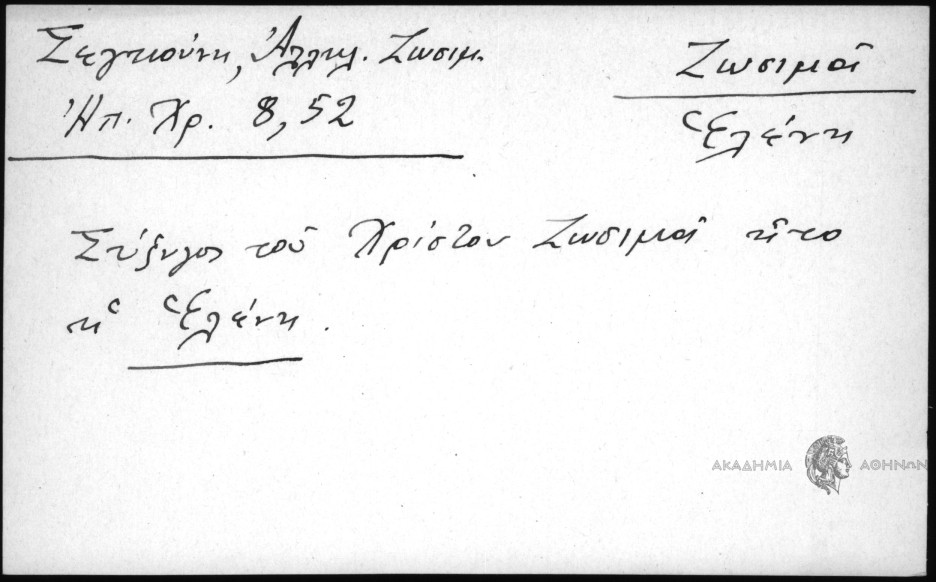 Σεγκούνη, Ἀλληλ. Ζωσιμ.
Ἠπ. Χρ. 8, 52
Ζωσιμᾶ
Ἑλένη
Σύζυγος τοῦ Χρίστου Ζωσιμᾶ ἦτο
ἡ Ἑλένη.
ΑΚΑΔΗΜΙΑ ΑΘΗΝΩΝ